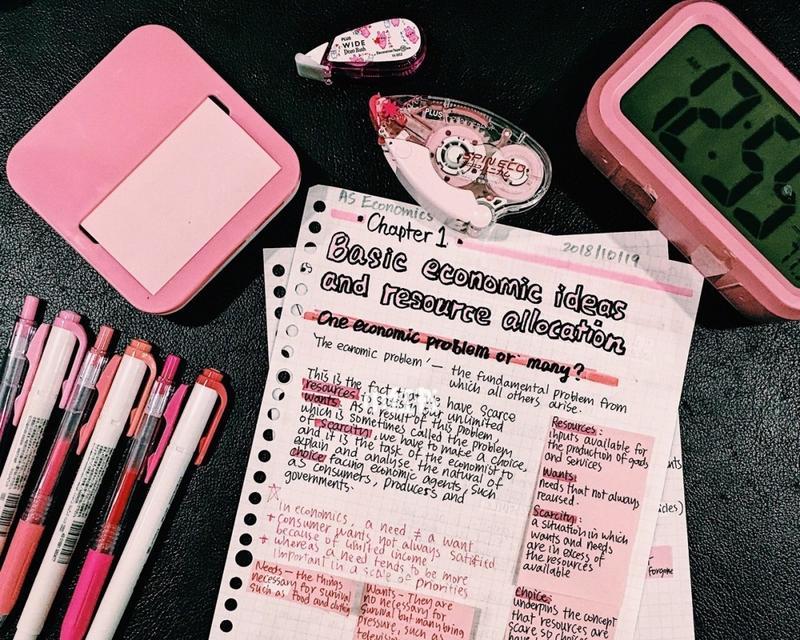 PLUS
WIDE
Deco Rush
PLUS
SPIN ECO
12:59
AS Economics
Chapter 1
2018/10/19
Basic economic ideas
and resource allocation
One economic problem or many?
'The economic problem' — the fundamental problem from
which all others arise.
This is the fact have scarce
resources but unlimited
wants. As a result of this problem,
which is sometimes called the problem
of scarcity, we have to make a choice,
and it is the task of the economist to
explain and analyse the natural of
choice facing economic agents, such
as consumers, producers and
governments.
In economics, a need ≠ a want
+ consumer wants not always satisfied
because of limited income.
+ whereas a need tends to be more
important in a scale of priorities
Needs — the things
necessary for survival
such as food and
Wants — They are
no necessary for
survival but many bring
pressure, such as
television
Resources:
inputs available for
the production of goods
and services
Wants:
needs that not always
reaused.
Scarcity:
a situation in which
wants and needs
are in excess of
the resources
available
choice:
underpins the concept
that resources are
scare so choices